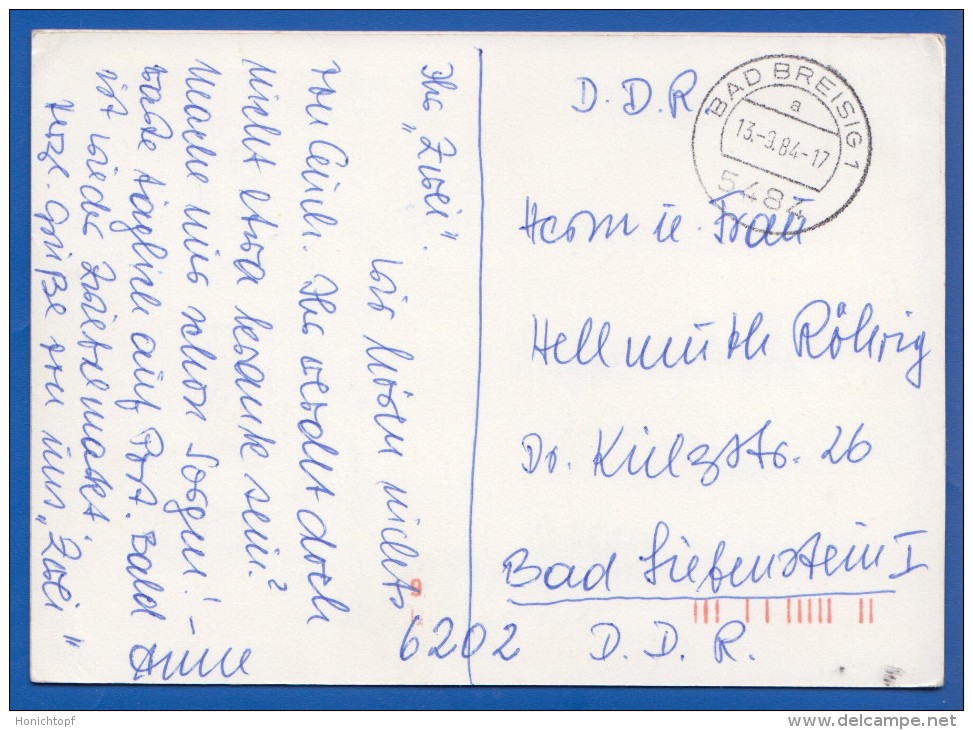 Ihr „Zwei".
Wir hören nichts
von Euch. Ihr werdet doch
nicht etwa krank sein?
Mache mir schon Sorgen! –
Warte täglich auf Post. Bald
ist wieder Zwiebelmarkt.
Herzl. Grüße von uns „Zwei"
Anne
D.D.R.
BAD BREISIG 1
a
13.-9.84-17
5484
Herrn u. Frau
Hellmuth Röhrig
Dr. Külzstr. 26
Bad Liebenstein I
6202 D.D.R.
Honichtopf
delcampe.net